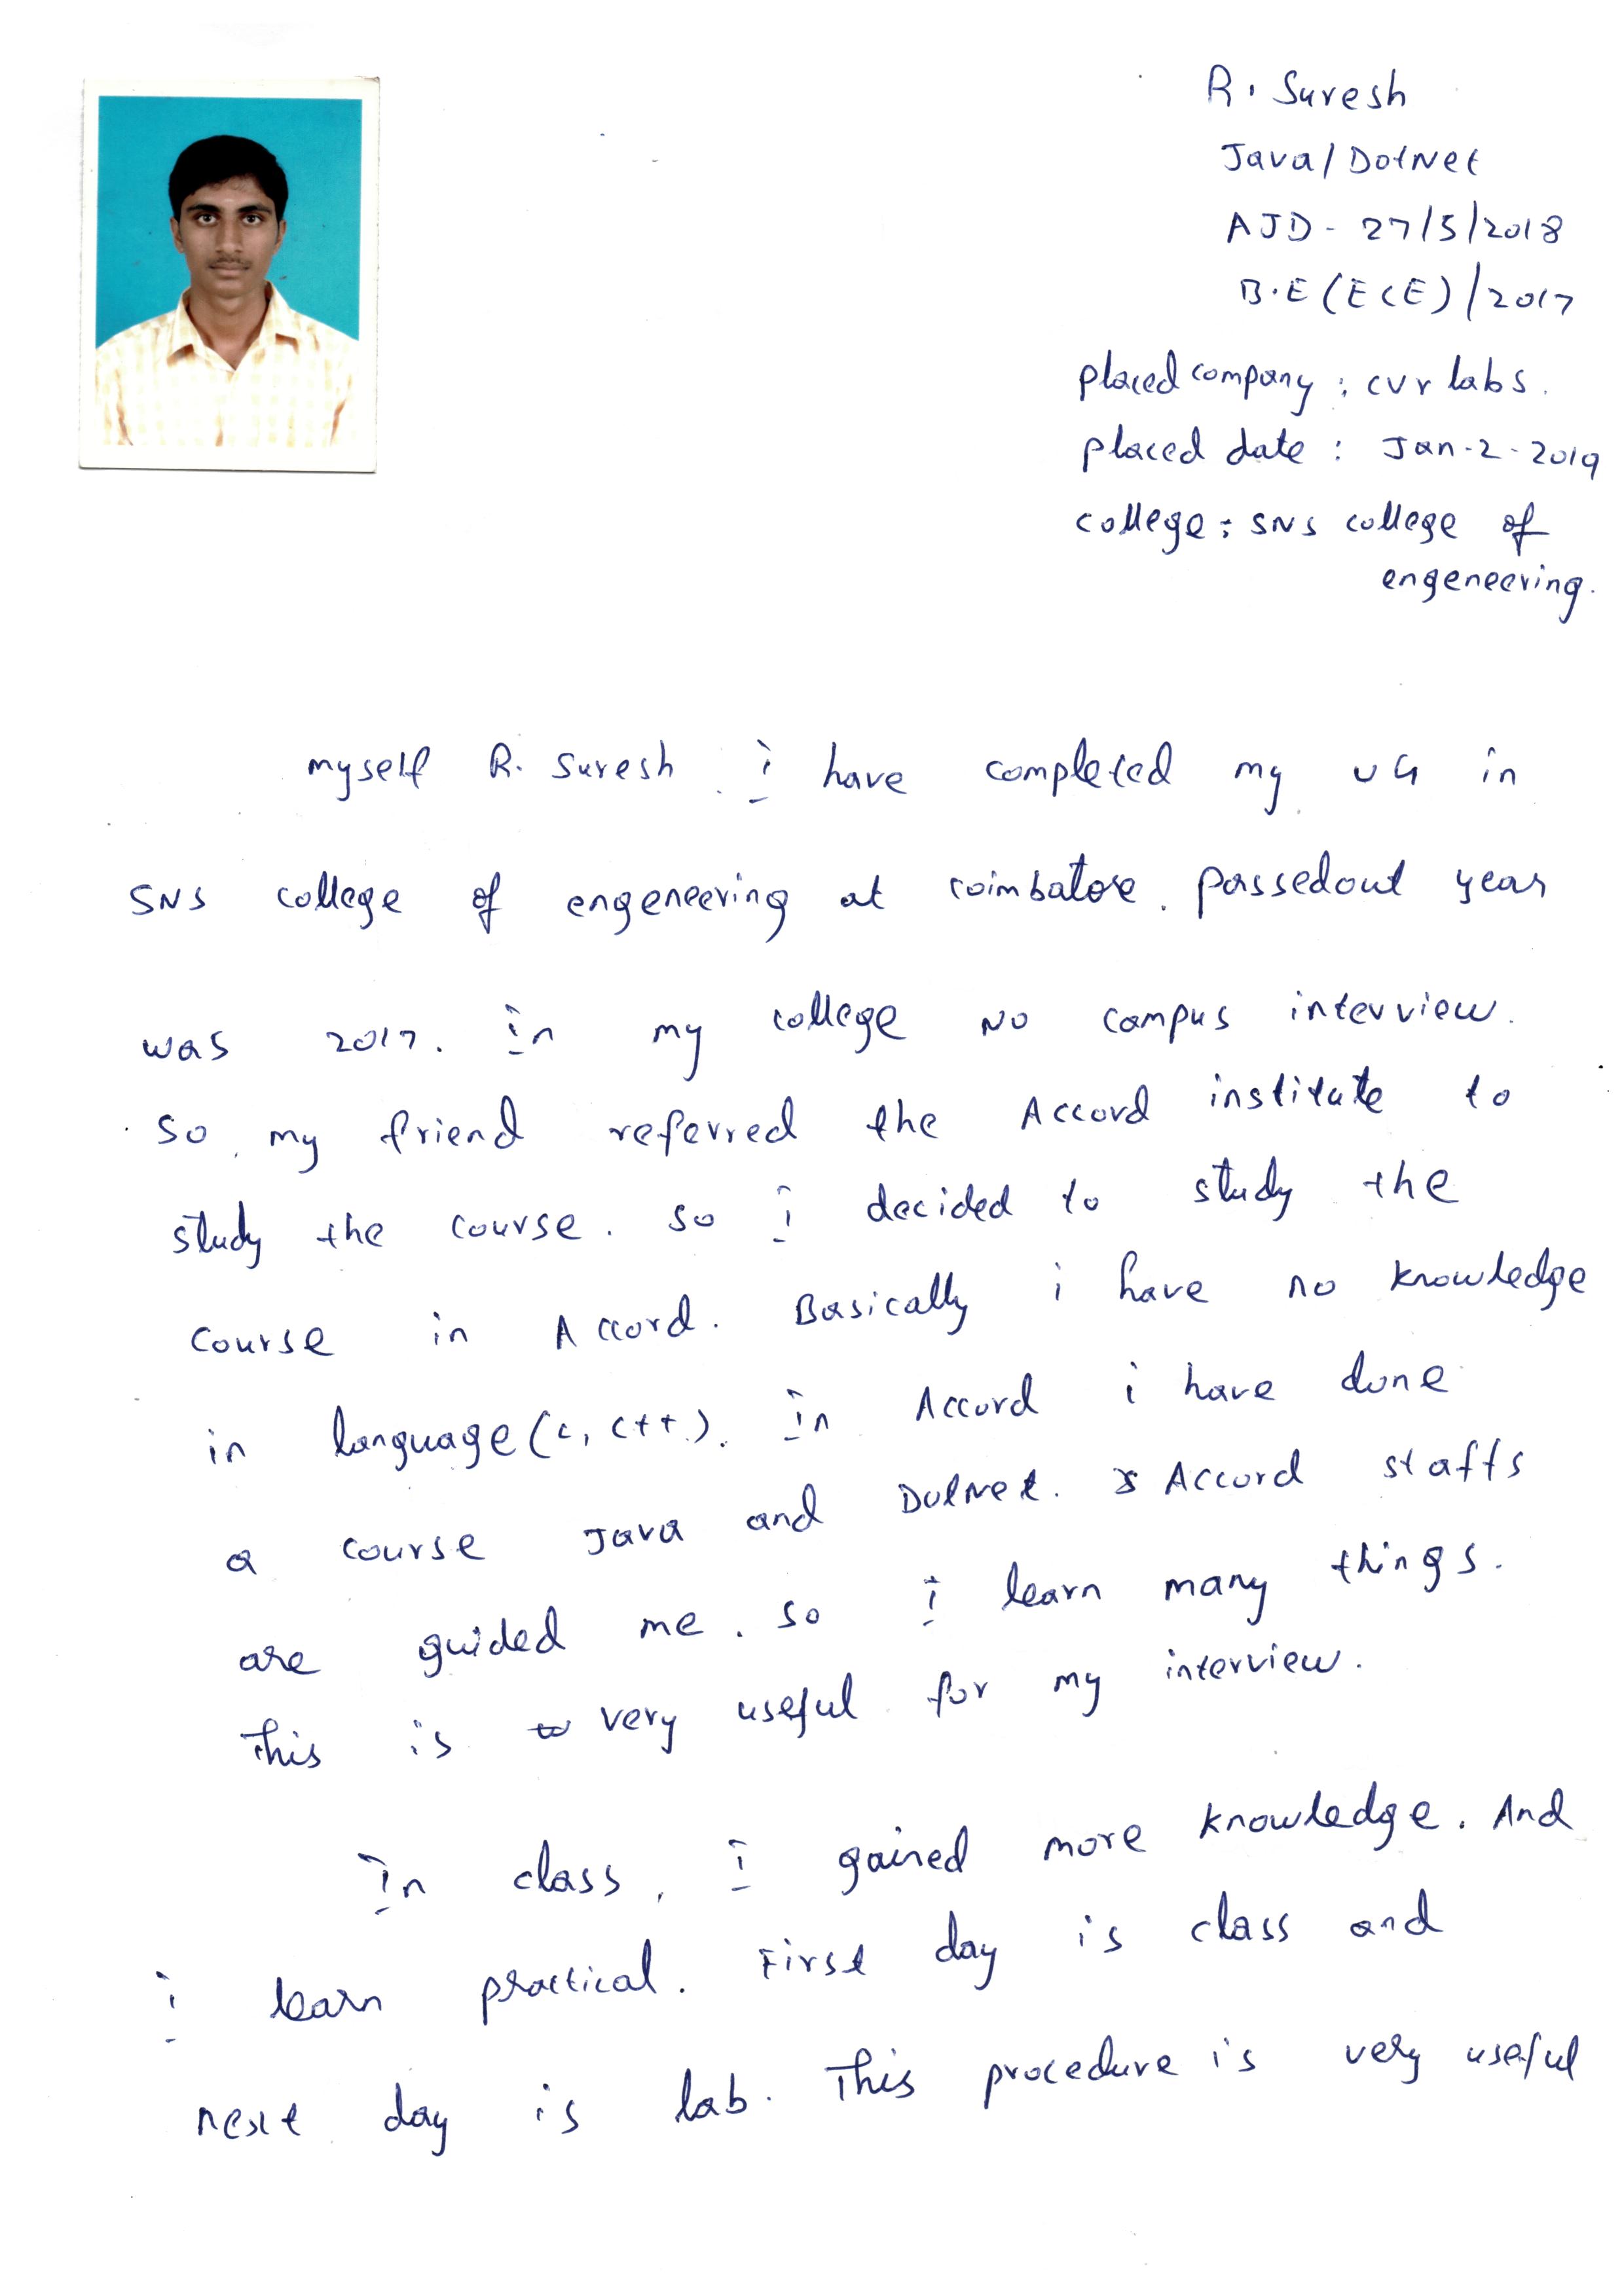 R. Suresh
Java/DotNet
AJD - 27/5/2018
B.E (ECE)/2017
placed company : cvr labs.
placed date : Jan-2-2019
college : SNS college of
engeneering.
myself R. Suresh. i have completed my UG in
SNS college of engeneering at coimbatore. passedout year
was 2017. in my college no campus interview.
so, my friend referred the Accord institute to
study the course. so i decided to study the
course in Accord. Basically i have no knowledge
in language (c, c++). in Accord i have done
a course Java and DotNet. Accord staffs
are guided me. so i learn many things.
This is very useful for my interview.
In class, i gained more knowledge. And
i learn practical. First day is class and
next day is lab. This procedure is very useful